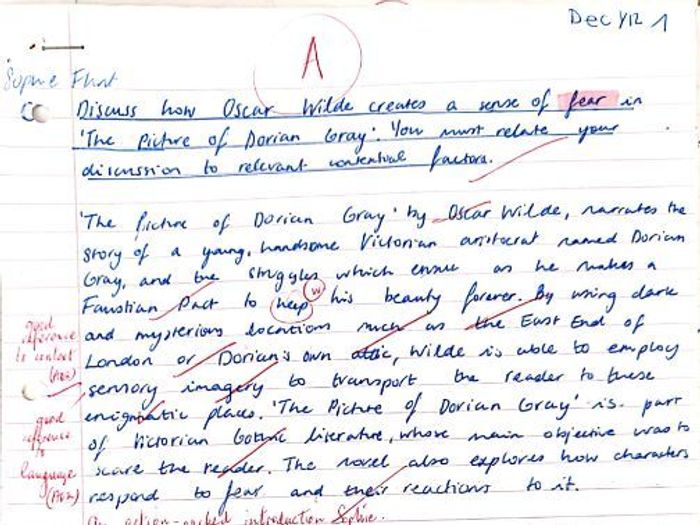 Dec Y12 1
A
Sophie Flint
Discuss how Oscar Wilde creates a sense of fear in
'The Picture of Dorian Gray'. You must relate your
discussion to relevant contextual factors.
'The Picture of Dorian Gray' by Oscar Wilde, narrates the
story of a young, handsome Victorian aristocrat named Dorian
Gray, and the struggles which ensue as he makes a
Faustian Pact to keep his beauty forever. By using dark
w
and mysterious locations such as the East End of
good
reference
to context
(AO3)
London or Dorian's own attic, Wilde is able to employ
sensory imagery to transport the reader to these
enigmatic places. 'The Picture of Dorian Gray' is part
good
reference
to
language
(AO2)
of Victorian Gothic literature, whose main objective was to
scare the reader. The novel also explores how characters
respond to fear and their reactions to it.
An action-packed introduction Sophie.